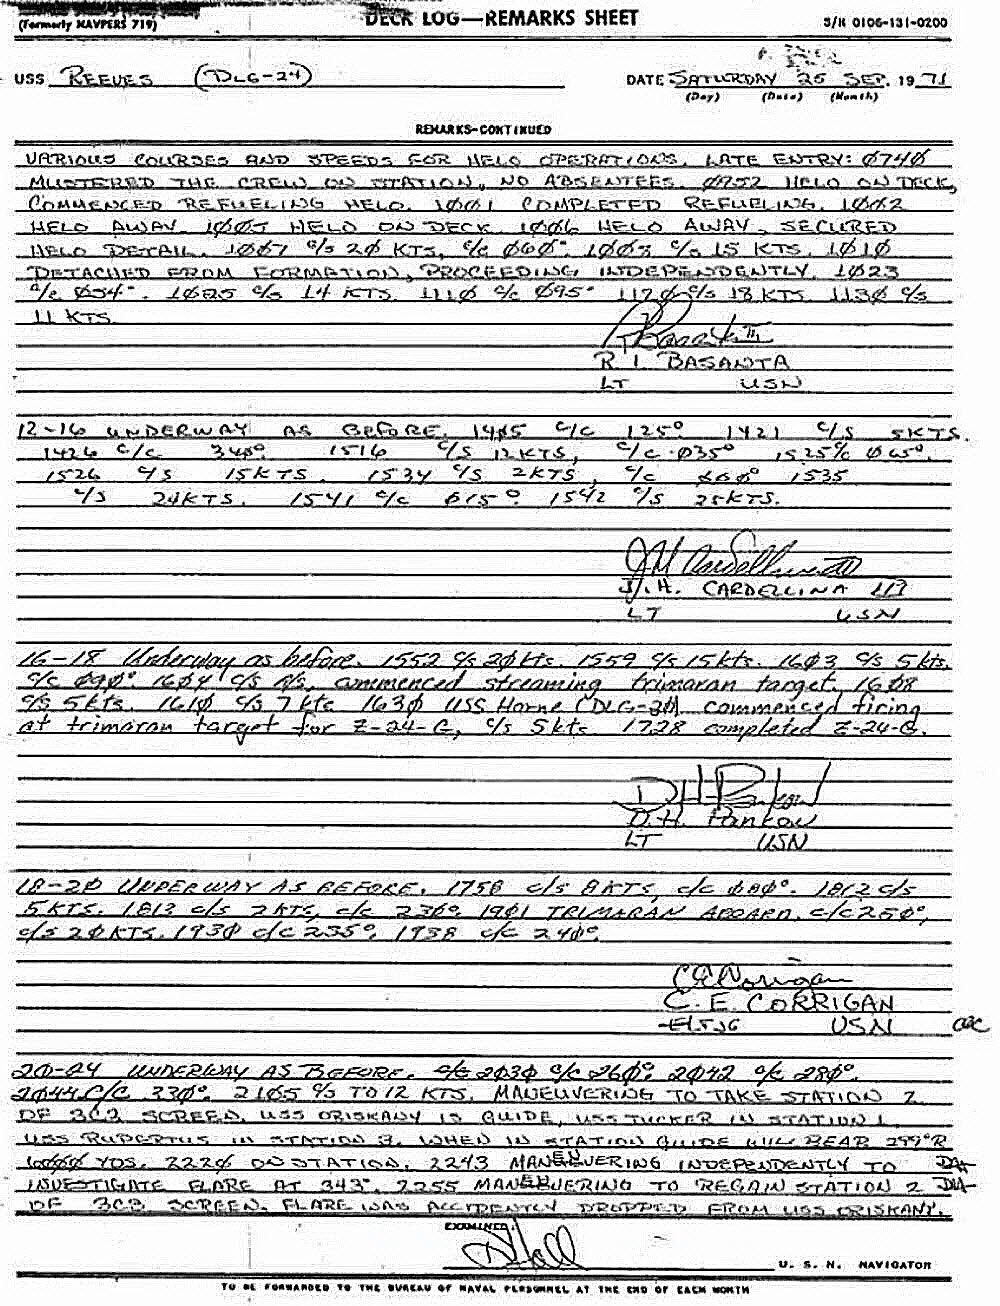 (Formerly NAVPERS 719)
DECK LOG—REMARKS SHEET
S/N 0106-131-0200
USS REEVES (DLG-24)
DATE SATURDAY 25 SEP. 1971
(Day) (Date) (Month)
REMARKS-CONTINUED
VARIOUS COURSES AND SPEEDS FOR HELO OPERATIONS. LATE ENTRY: Ø74Ø
MUSTERED THE CREW ON STATION, NO ABSENTEES. Ø952 HELO ON DECK,
COMMENCED REFUELING HELO. 1ØØ1 COMPLETED REFUELING. 1ØØ2
HELO AWAY. 1ØØ5 HELO ON DECK 1ØØ6 HELO AWAY, SECURED
HELO DETAIL. 1ØØ7 C/S 2Ø KTS, C/C Ø6Ø°. 1ØØ8 C/S 15 KTS. 1Ø1Ø
DETACHED FROM FORMATION, PROCEEDING INDEPENDENTLY. 1Ø23
C/C Ø54°. 1Ø25 C/S 14 KTS. 111Ø C/C Ø95° 112Ø C/S 18 KTS. 113Ø C/S
11 KTS.
R. I. BASANTA
LT USN
12-16 UNDERWAY AS BEFORE. 14Ø5 C/C 125° 1421 C/S 5KTS.
1426 C/C 34Ø° 1516 C/S 12KTS, C/C Ø35° 1525 C/C Ø65°.
1526 C/S 15KTS. 1534 C/S 2KTS, C/C 1535
C/S 24KTS. 1541 C/C Ø15° 1542 C/S 25KTS.
J. H. CARDELLINA III
LT USN
16-18 Underway as before. 1552 C/S 2Økts. 1559 C/S 15kts. 16Ø3 C/S 5kts.
C/C Ø9Ø°. 16Ø4 C/S A/S, commenced streaming trimaran target. 16Ø8
C/S 5kts. 161Ø C/S 7kts 163Ø USS Horne (DLG-3Ø) commenced firing
at trimaran target for Z-24-G, C/S 5kts 1728 completed Z-24-G.
D.H. Pankow
LT USN
18-2Ø UNDERWAY AS BEFORE. 1758 C/S 8KTS, C/C Ø8Ø°. 1812 C/S
5KTS. 1813 C/S 7KTS, C/C 23Ø°. 19Ø1 TRIMARAN ABOARD. C/C 25Ø°,
C/S 2ØKTS. 193Ø C/C 235°, 1938 C/C 24Ø°.
C. E. CORRIGAN
LTJG USN CEC
2Ø-24 UNDERWAY AS BEFORE. 2Ø3Ø C/C 26Ø°. 2Ø42 C/C 28Ø°.
2Ø44 C/C 33Ø°. 21Ø5 C/S TO 12 KTS. MANEUVERING TO TAKE STATION 2
OF 3C3 SCREEN. USS ORISKANY IS GUIDE, USS TUCKER IN STATION 1
USS RUPERTUS IN STATION 3. WHEN IN STATION GUIDE WILL BEAR 299°R
YDS. 222Ø ON STATION. 2243 MANEUVERING INDEPENDENTLY TO
INVESTIGATE FLARE AT 343°. 2255 MANEUVERING TO REGAIN STATION 2
OF 3C3 SCREEN. FLARE WAS ACCIDENTLY DROPPED FROM USS ORISKANY.
EXAMINED:
U. S. N. NAVIGATOR
TO BE FORWARDED TO THE BUREAU OF NAVAL PERSONNEL AT THE END OF EACH MONTH